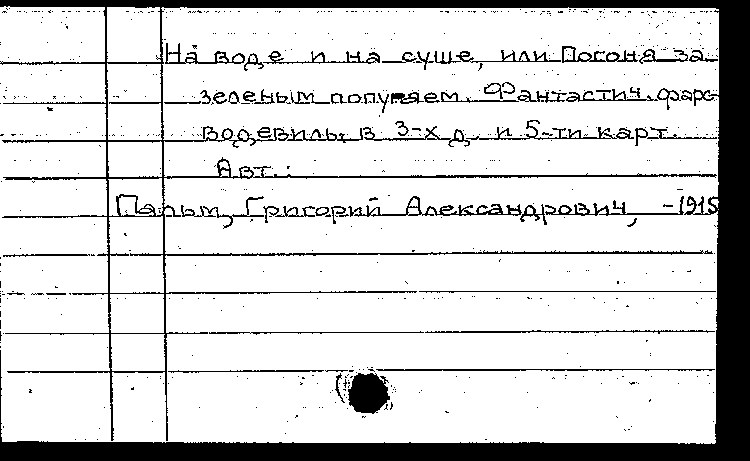 На воде и на суше, или Погоня за
зеленым попугаем. Фантастич. фарс-
водевиль в 3-х д. и 5-ти карт.
Авт.:
Пальм, Григорий Александрович, -1915